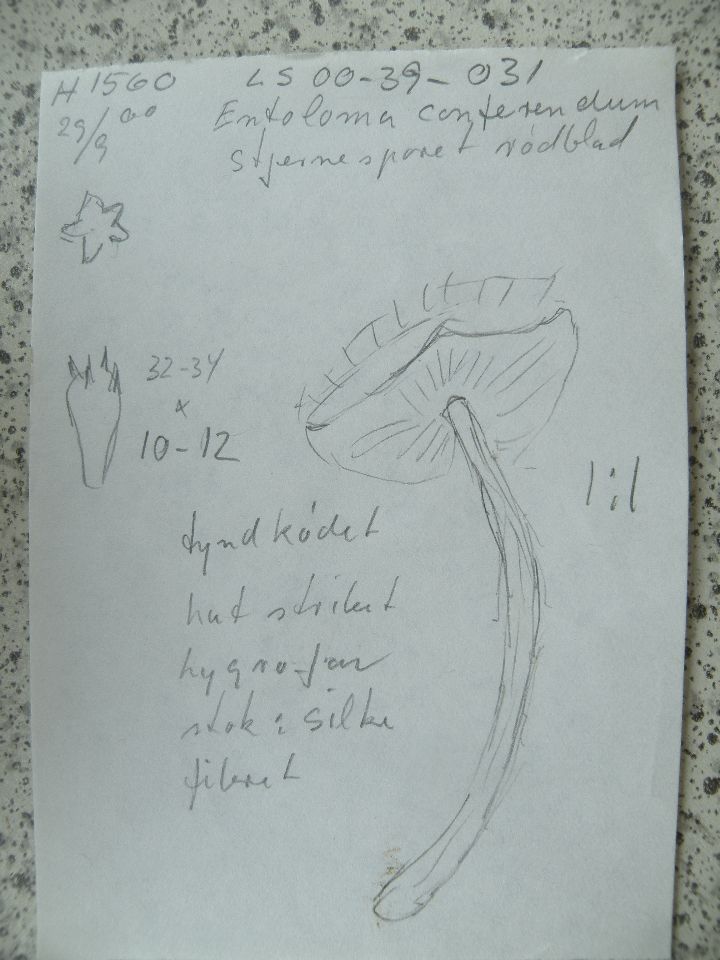 H 1560 LS 00-39-031
29/9 00 Entoloma conferendum
Stjernesporet rødblad
32-34
x
10-12
1:1
tyndkødet
hat stribet
hygrofan
stok: silke
fibret